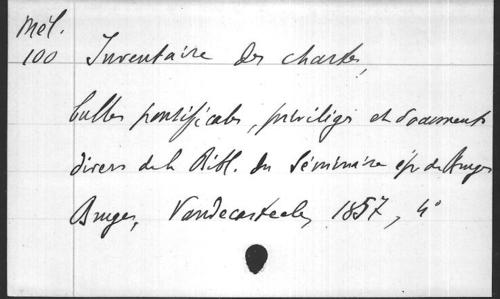 Mél.
100 Inventaire des chartes,
bulles pontificales, privilèges et documents
divers de la Bibl. du Séminaire ép. de Bruges
Bruges, Vandecasteele, 1857, 4°